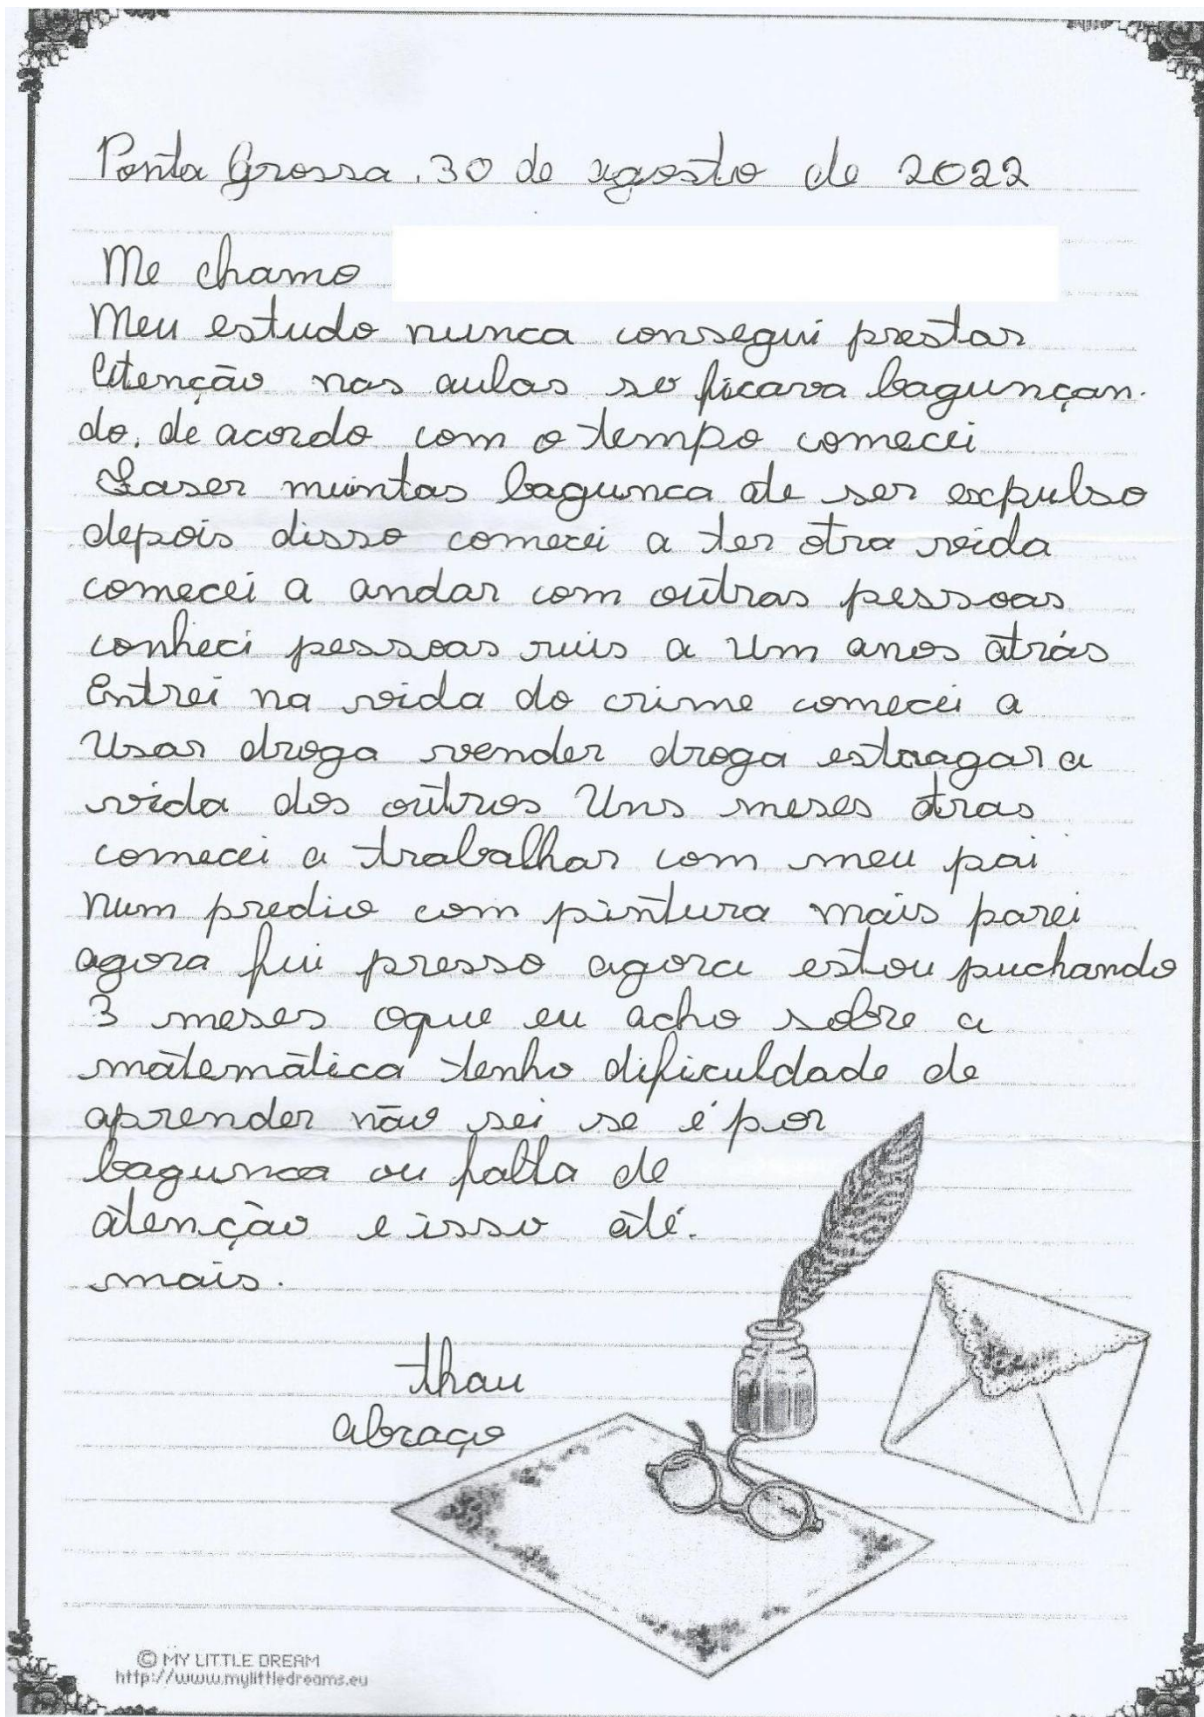 Ponta Grossa, 30 de agosto de 2022
Me chamo
Meu estudo nunca consegui prestar
Atenção nas aulas so ficava bagunçan-
do. de acordo com o tempo comecei
Faser muintas bagunca ate ser expulso
depois disso comecei a ter otra vida
comecei a andar com outras pessoas
conheci pessoas ruis a um anos atrás
Entrei na vida do crime comecei a
Usar droga vender droga estragar a
vida dos outros Uns meses atras
comecei a trabalhar com meu pai
num predio com pintura mais parei
agora fui presso agora estou puchando
3 meses oque eu acho sobre a
matemática tenho dificuldade de
aprender não sei se é por
bagunca ou falta de
atenção e isso até.
mais.
thau
abraço
© MY LITTLE DREAM
http://www.mylittledreams.eu